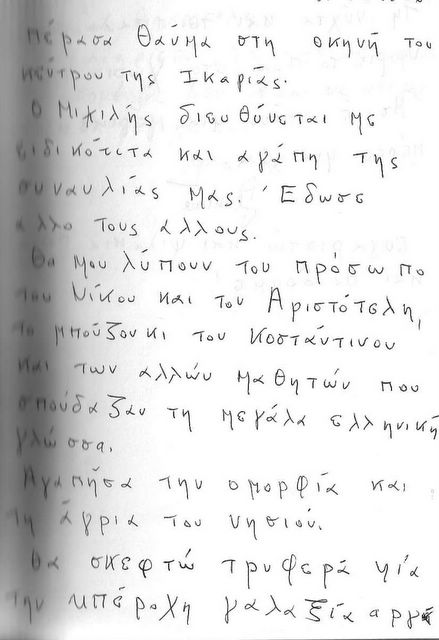 πέρασα θαύμα στη σκηνή του
κέντρου της Ικαριάς.
Ο Μιχιλής διευθύνεται με
ειδικότετα και αγάπη της
συναυλίας μας. Έδωσε
αλλο τους αλλους.
Θα μου λυπουν του πρόσωπο
του Νίκου και του Αριστότελη,
το μπούζουκι του Κοστάντινου
και των αλλών μαθητών που
σπούδαζαν τη μεγάλα ελληνική
γλώσσα.
Αγαπήσα την ομορφία και
τη άγρια του νησιού.
Θα σκεφτώ τρυφερά γιά
την μπέροχη γαλαξία αργά